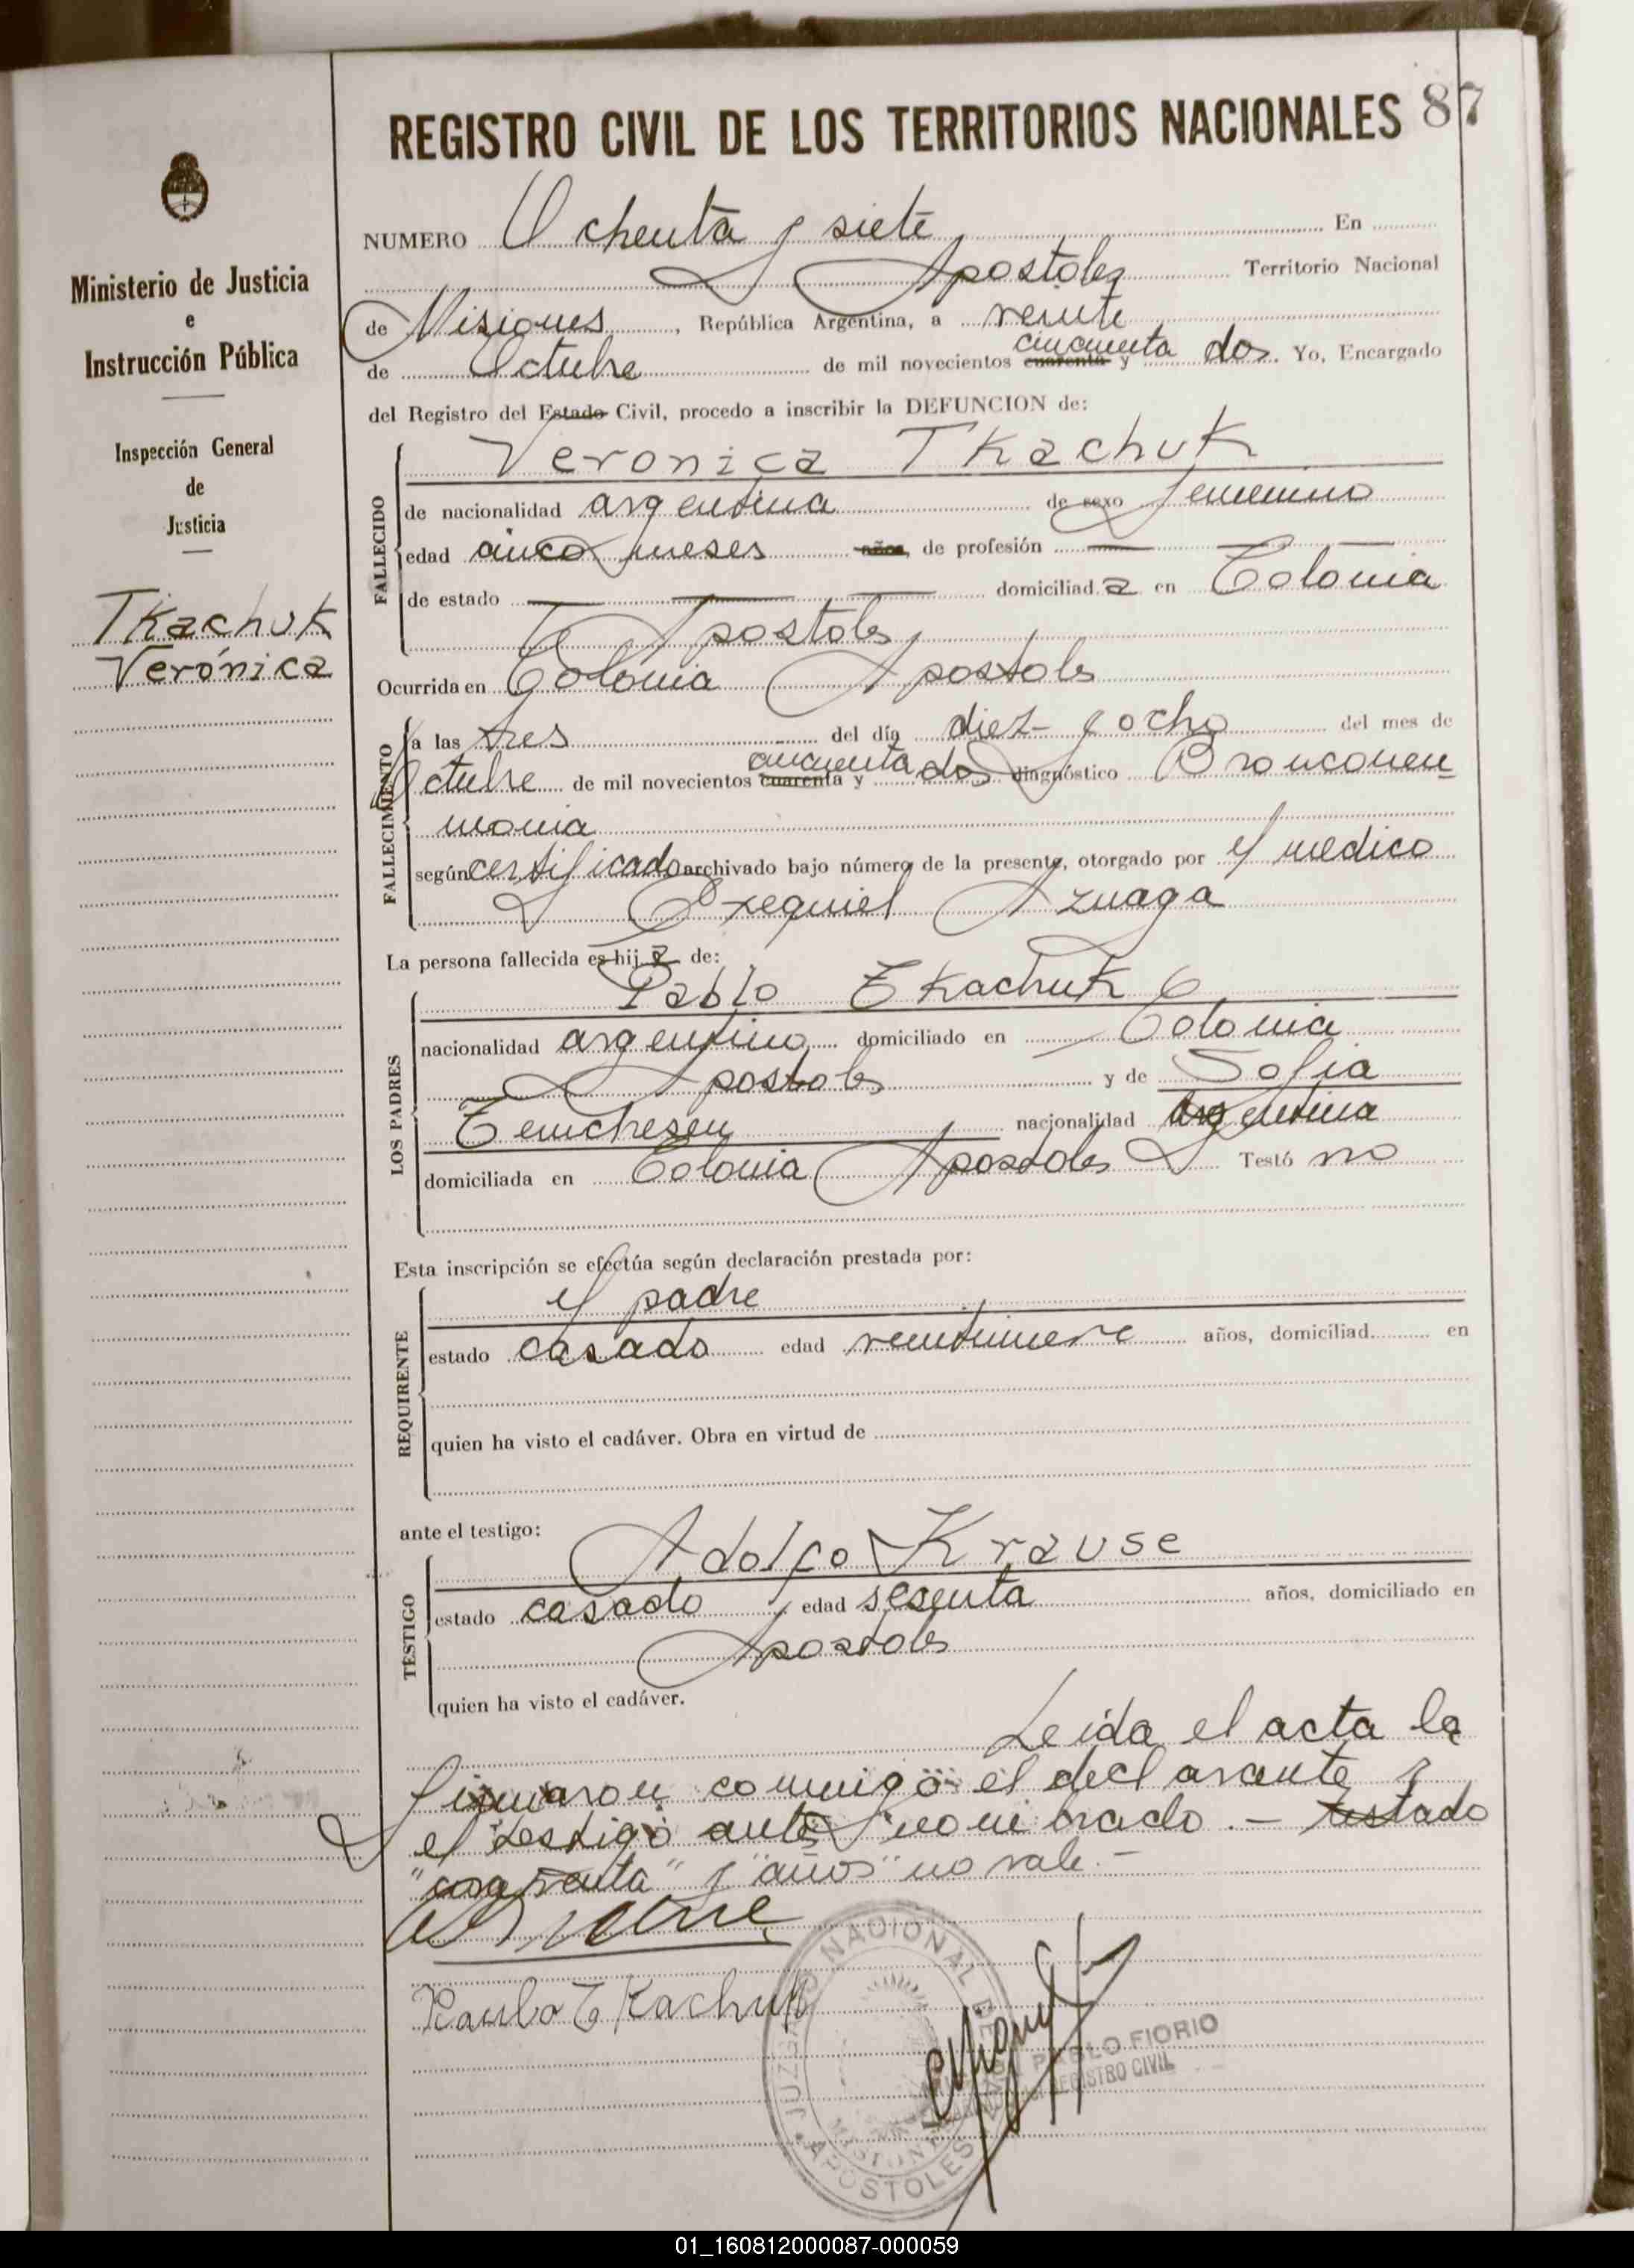 REGISTRO CIVIL DE LOS TERRITORIOS NACIONALES 87
Ministerio de Justicia
e
Instrucción Pública
Inspección General
de
Justicia
Tkachuk
Verónica
NUMERO Ochenta y siete En
Apostoles Territorio Nacional
de Misiones, República Argentina, a veinte
de Octubre de mil novecientos cuarenta y cincuenta dos. Yo, Encargado
del Registro del Estado Civil, procedo a inscribir la DEFUNCION de:
FALLECIDO
Veronica Tkachuk
de nacionalidad argentina de sexo femenino
edad cinco meses años, de profesión
de estado domiciliada en Colonia
Apostoles
Ocurrida en Colonia Apostoles
FALLECIMIENTO
a las tres del día diez y ocho del mes de
Octubre de mil novecientos cuarenta y cincuenta dos diagnóstico Bronconeu
monia
según certificado archivado bajo número de la presente, otorgado por el medico
Exequiel Azuaga
La persona fallecida es hija de:
LOS PADRES
Pablo Tkachuk
nacionalidad argentino domiciliado en Colonia
Apostoles y de Sofia
nacionalidad Argentina
domiciliada en Colonia Apostoles Testó no
Esta inscripción se efectúa según declaración prestada por:
REQUIRENTE
el padre
estado casado edad veintinueve años, domiciliad en
quien ha visto el cadáver. Obra en virtud de
ante el testigo:
TESTIGO
Adolfo Krause
estado casado edad sesenta años, domiciliado en
Apostoles
quien ha visto el cadáver.
Leida el acta la
firmaron conmigo el declarante y
el testigo ante nombrado.- testado
"cuarenta" y "años" no vale.-
Paulo Tkachuk
JUZGADO NACIONAL DE PAZ
MISIONES
APOSTOLES
PABLO FIORIO
REGISTRO CIVIL
01_160812000087-000059